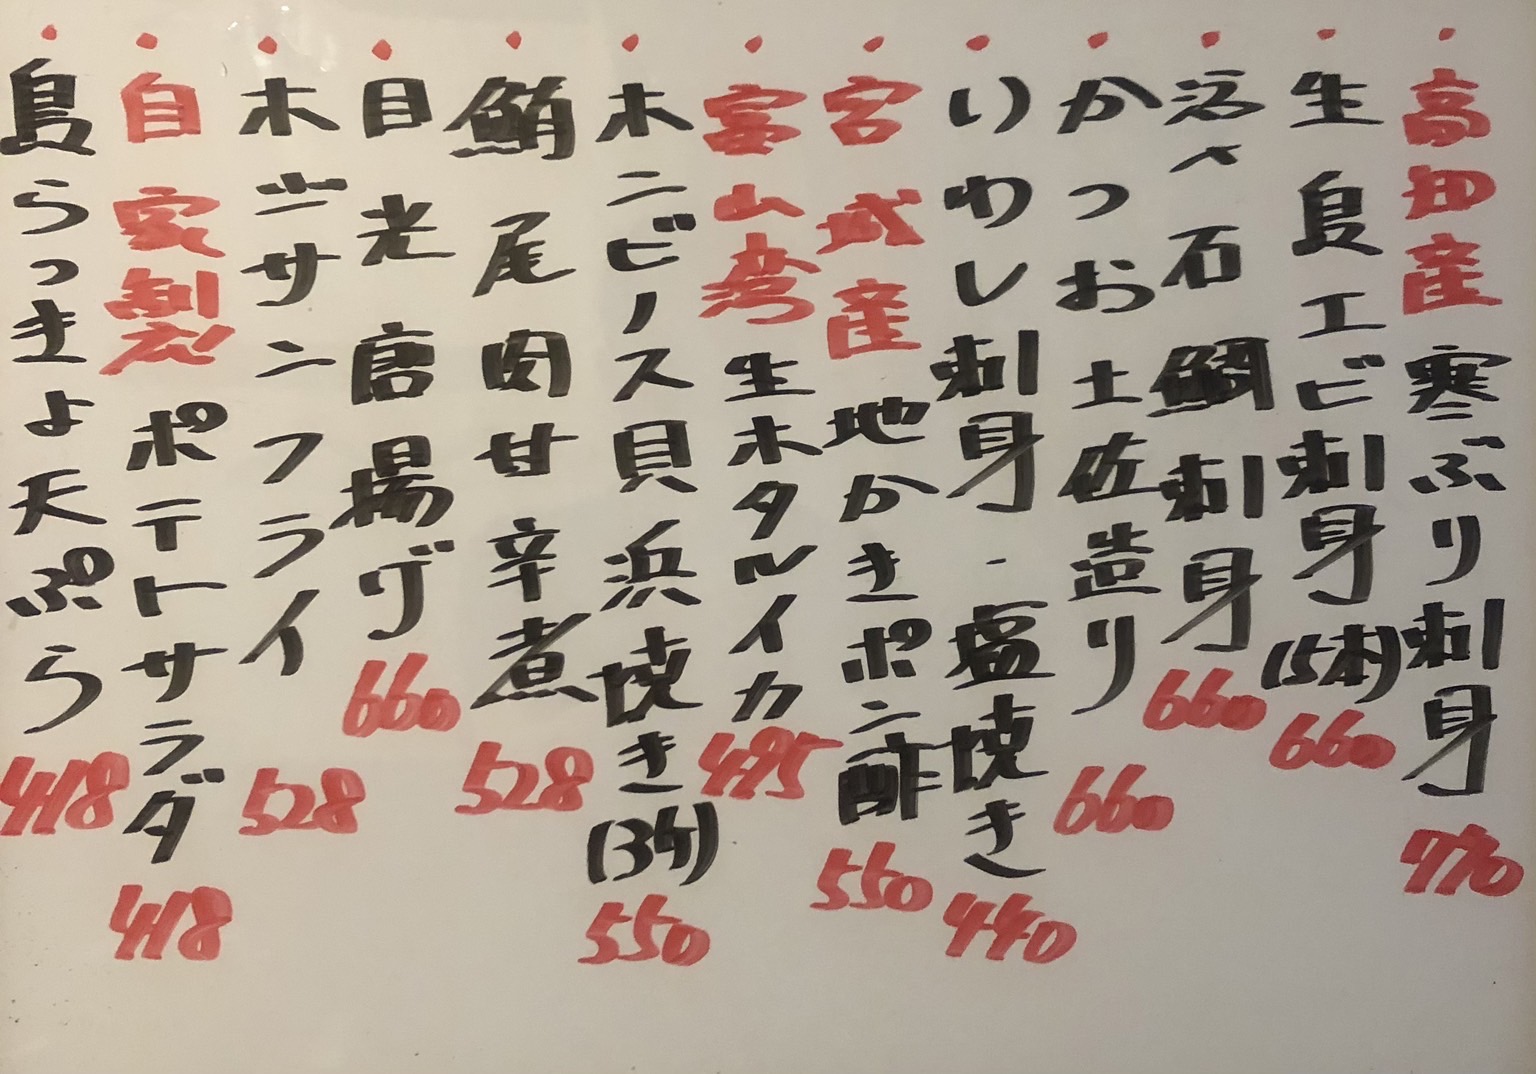 ・高知産 寒ぶり刺身 770
・生島エビ刺身(5本) 660
・活〆石鯛刺身 660
・かつお土佐造り 660
・いわし刺身・塩焼き 440
・宮城産 地かきポン酢 550
・富山湾 生ホタルイカ 495
・ホンビノス貝浜焼き(3ケ) 550
・鮪尾肉甘辛煮 528
・目光唐揚げ 660
・フライ 528
・自家製 ポテトサラダ 418
・島らっきょ天ぷら 418